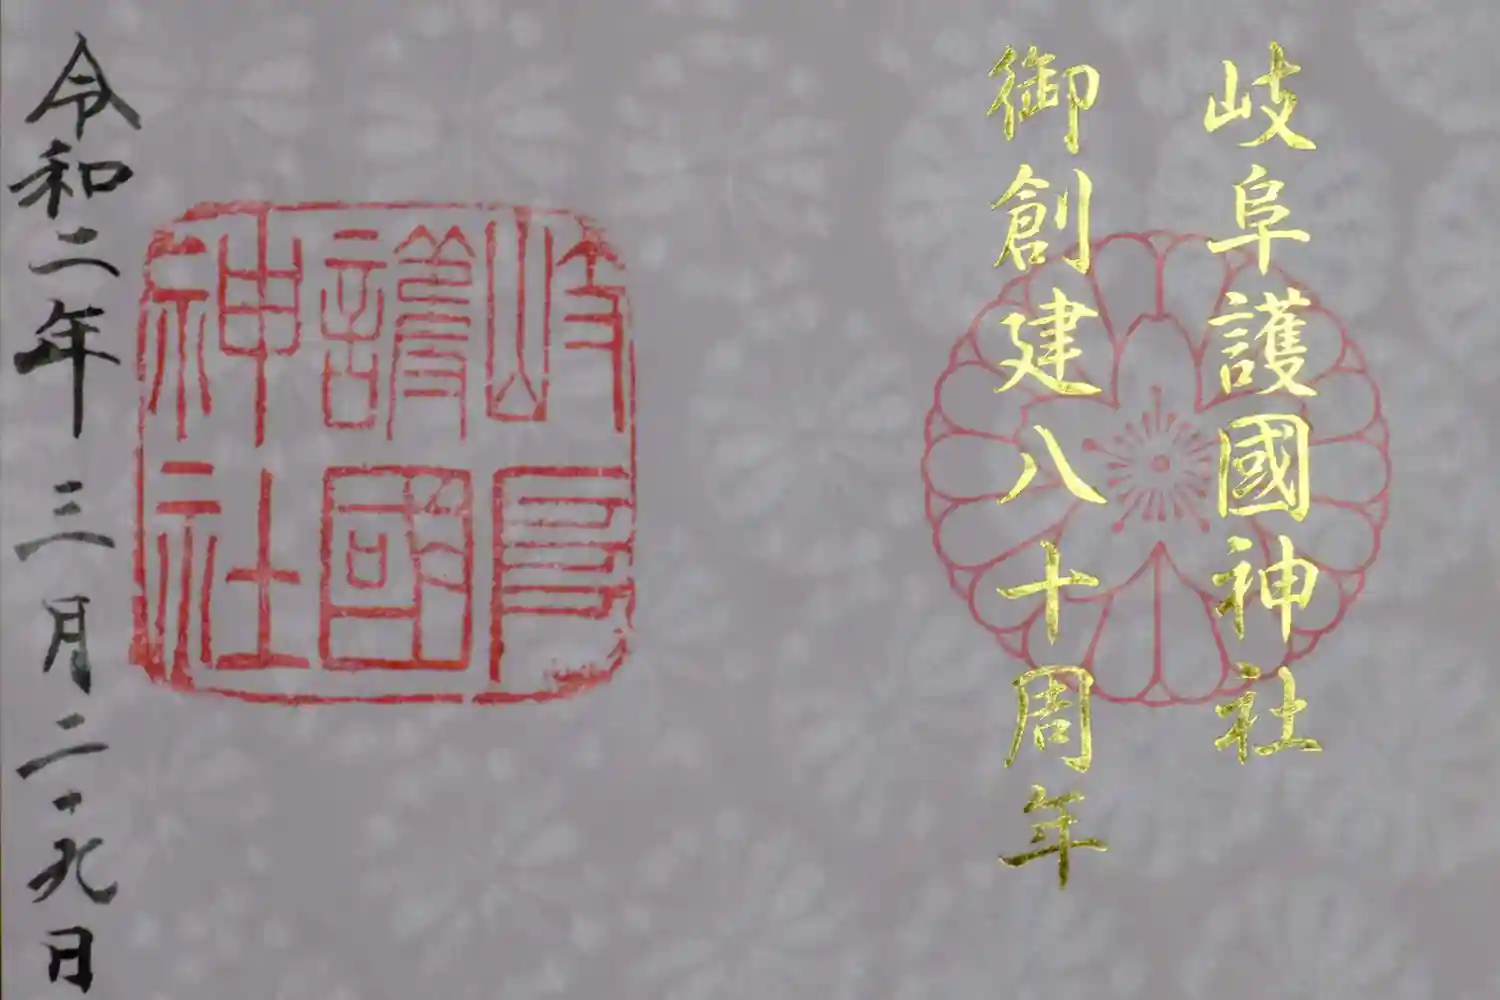 岐阜護國神社
御創建八十周年
岐阜
護國
神社
令和二年三月二・九日